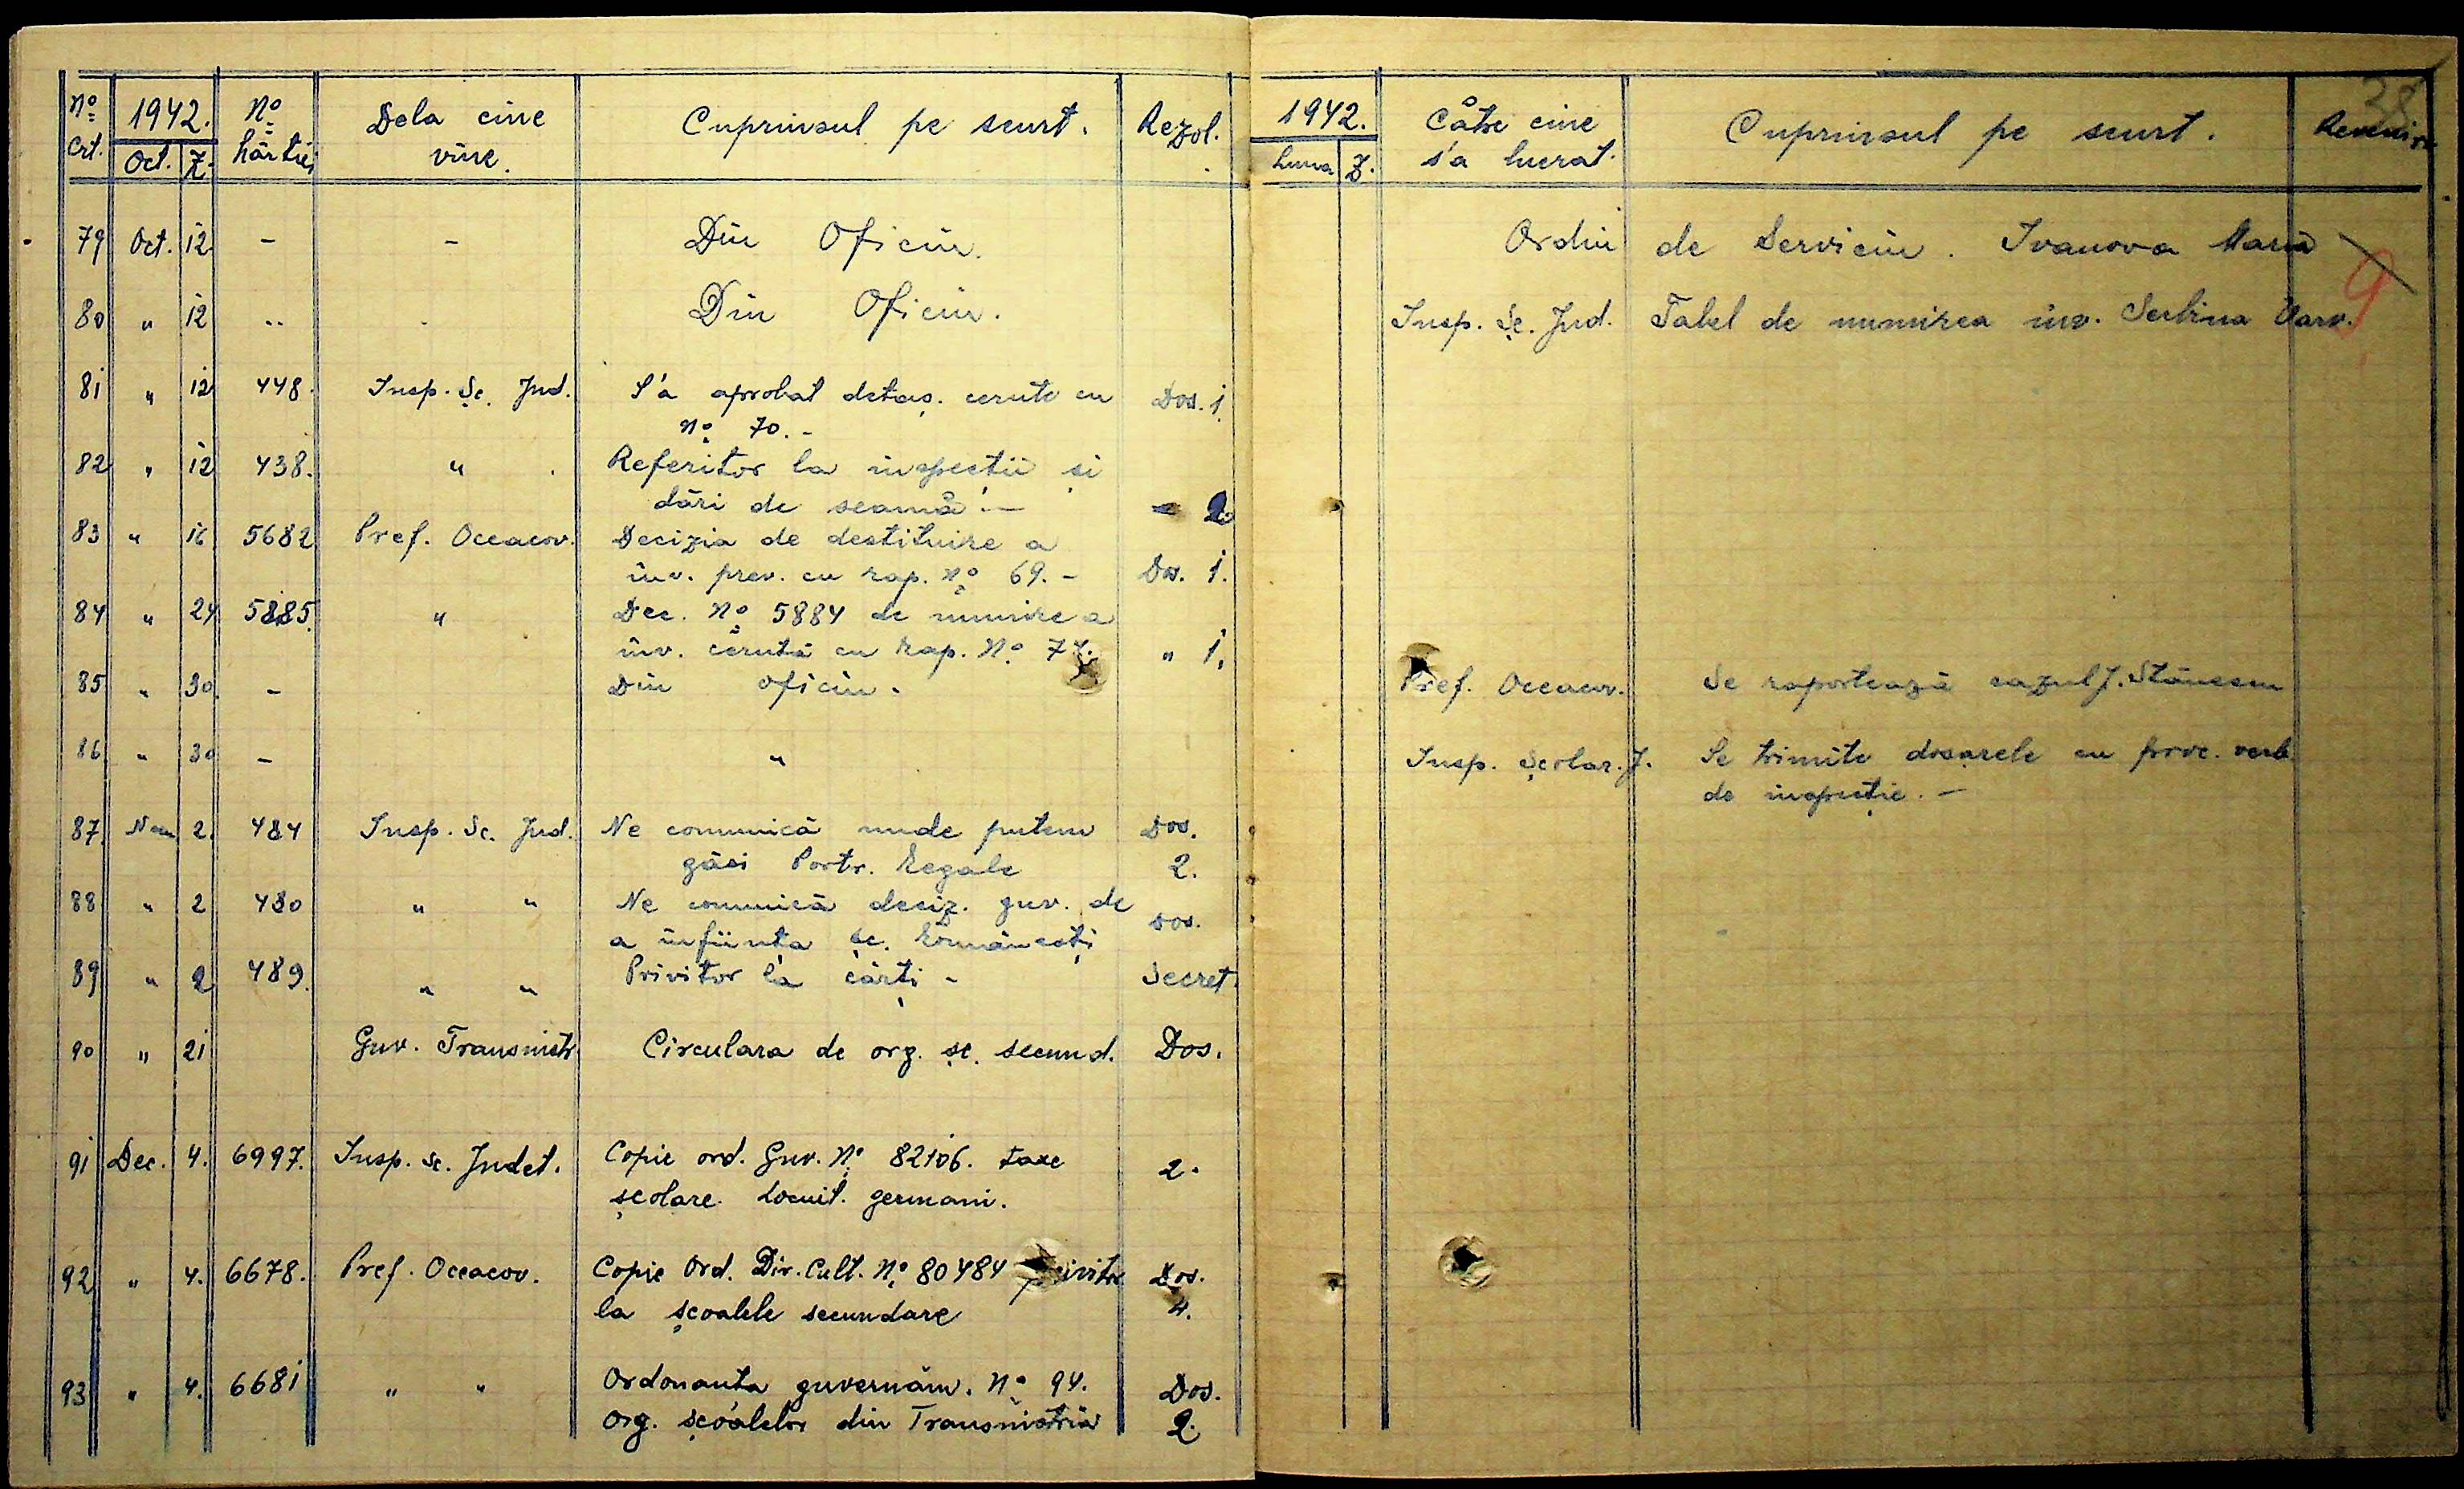 No crt. 1942. Oct. Z. No hârtiei Dela cine vine. Cuprinsul pe scurt. Rezol.
79 Oct. 12 - - Din Oficiu.
80 " 12 .. . Din Oficiu.
81 " 12 448. Insp. Șc. Jud. S'a aprobat detaș. cerute cu Dos. 1.
No 70. -
82 " 12 438. " Referitor la inspecții și
dări de seamă. — - 2.
83 " 16 5682 Pref. Oceacov. Decizia de destituire a
înv. prev. cu rap. No 69. - Dos. 1.
84 " 24 5885. " Dec. No 5884 de numire a
înv. cerută cu rap. No. " 1.
85 " 30 - Din oficiu.
86 " 30 - "
87. 2. 484 Insp. Sc. Jud. Ne comunică unde putem Dos.
găsi Portr. Regale 2.
88 " 2 480 " " Ne comunică deciz. guv. de Dos.
a înființa șc. Românești
89 " 2 489. " " Privitor la cărți - Secret.
90 " 21 Guv. Transnistr. Circulara de org. șc. secund. Dos.
91 Dec. 4. 6997. Insp. Sc. Județ. Copie ord. Guv. No 82106. taxe 2.
școlare. Locuit. germani.
92 " 4. 6678. Pref. Oceacov. Copie Ord. Dir. Cult. No 80484 privitor Dos.
la școalele secundare 4.
93 " 4. 6681 " " Ordonanța guvernăm. No 94. Dos.
Org. școalelor din Transnistria 2.
28
1942. Luna Z. Către cine s'a lucrat. Cuprinsul pe scurt. Reveniri
Ordin de Serviciu. Ivanova Maria
9
Insp. Șc. Jud. Tabel de numirea înv. Varv.
Pref. Oceacov. Se raportează cazul J. Stănescu
Insp. Școlar. J. Se trimite dosarele cu proc. verb
de inspecție. —